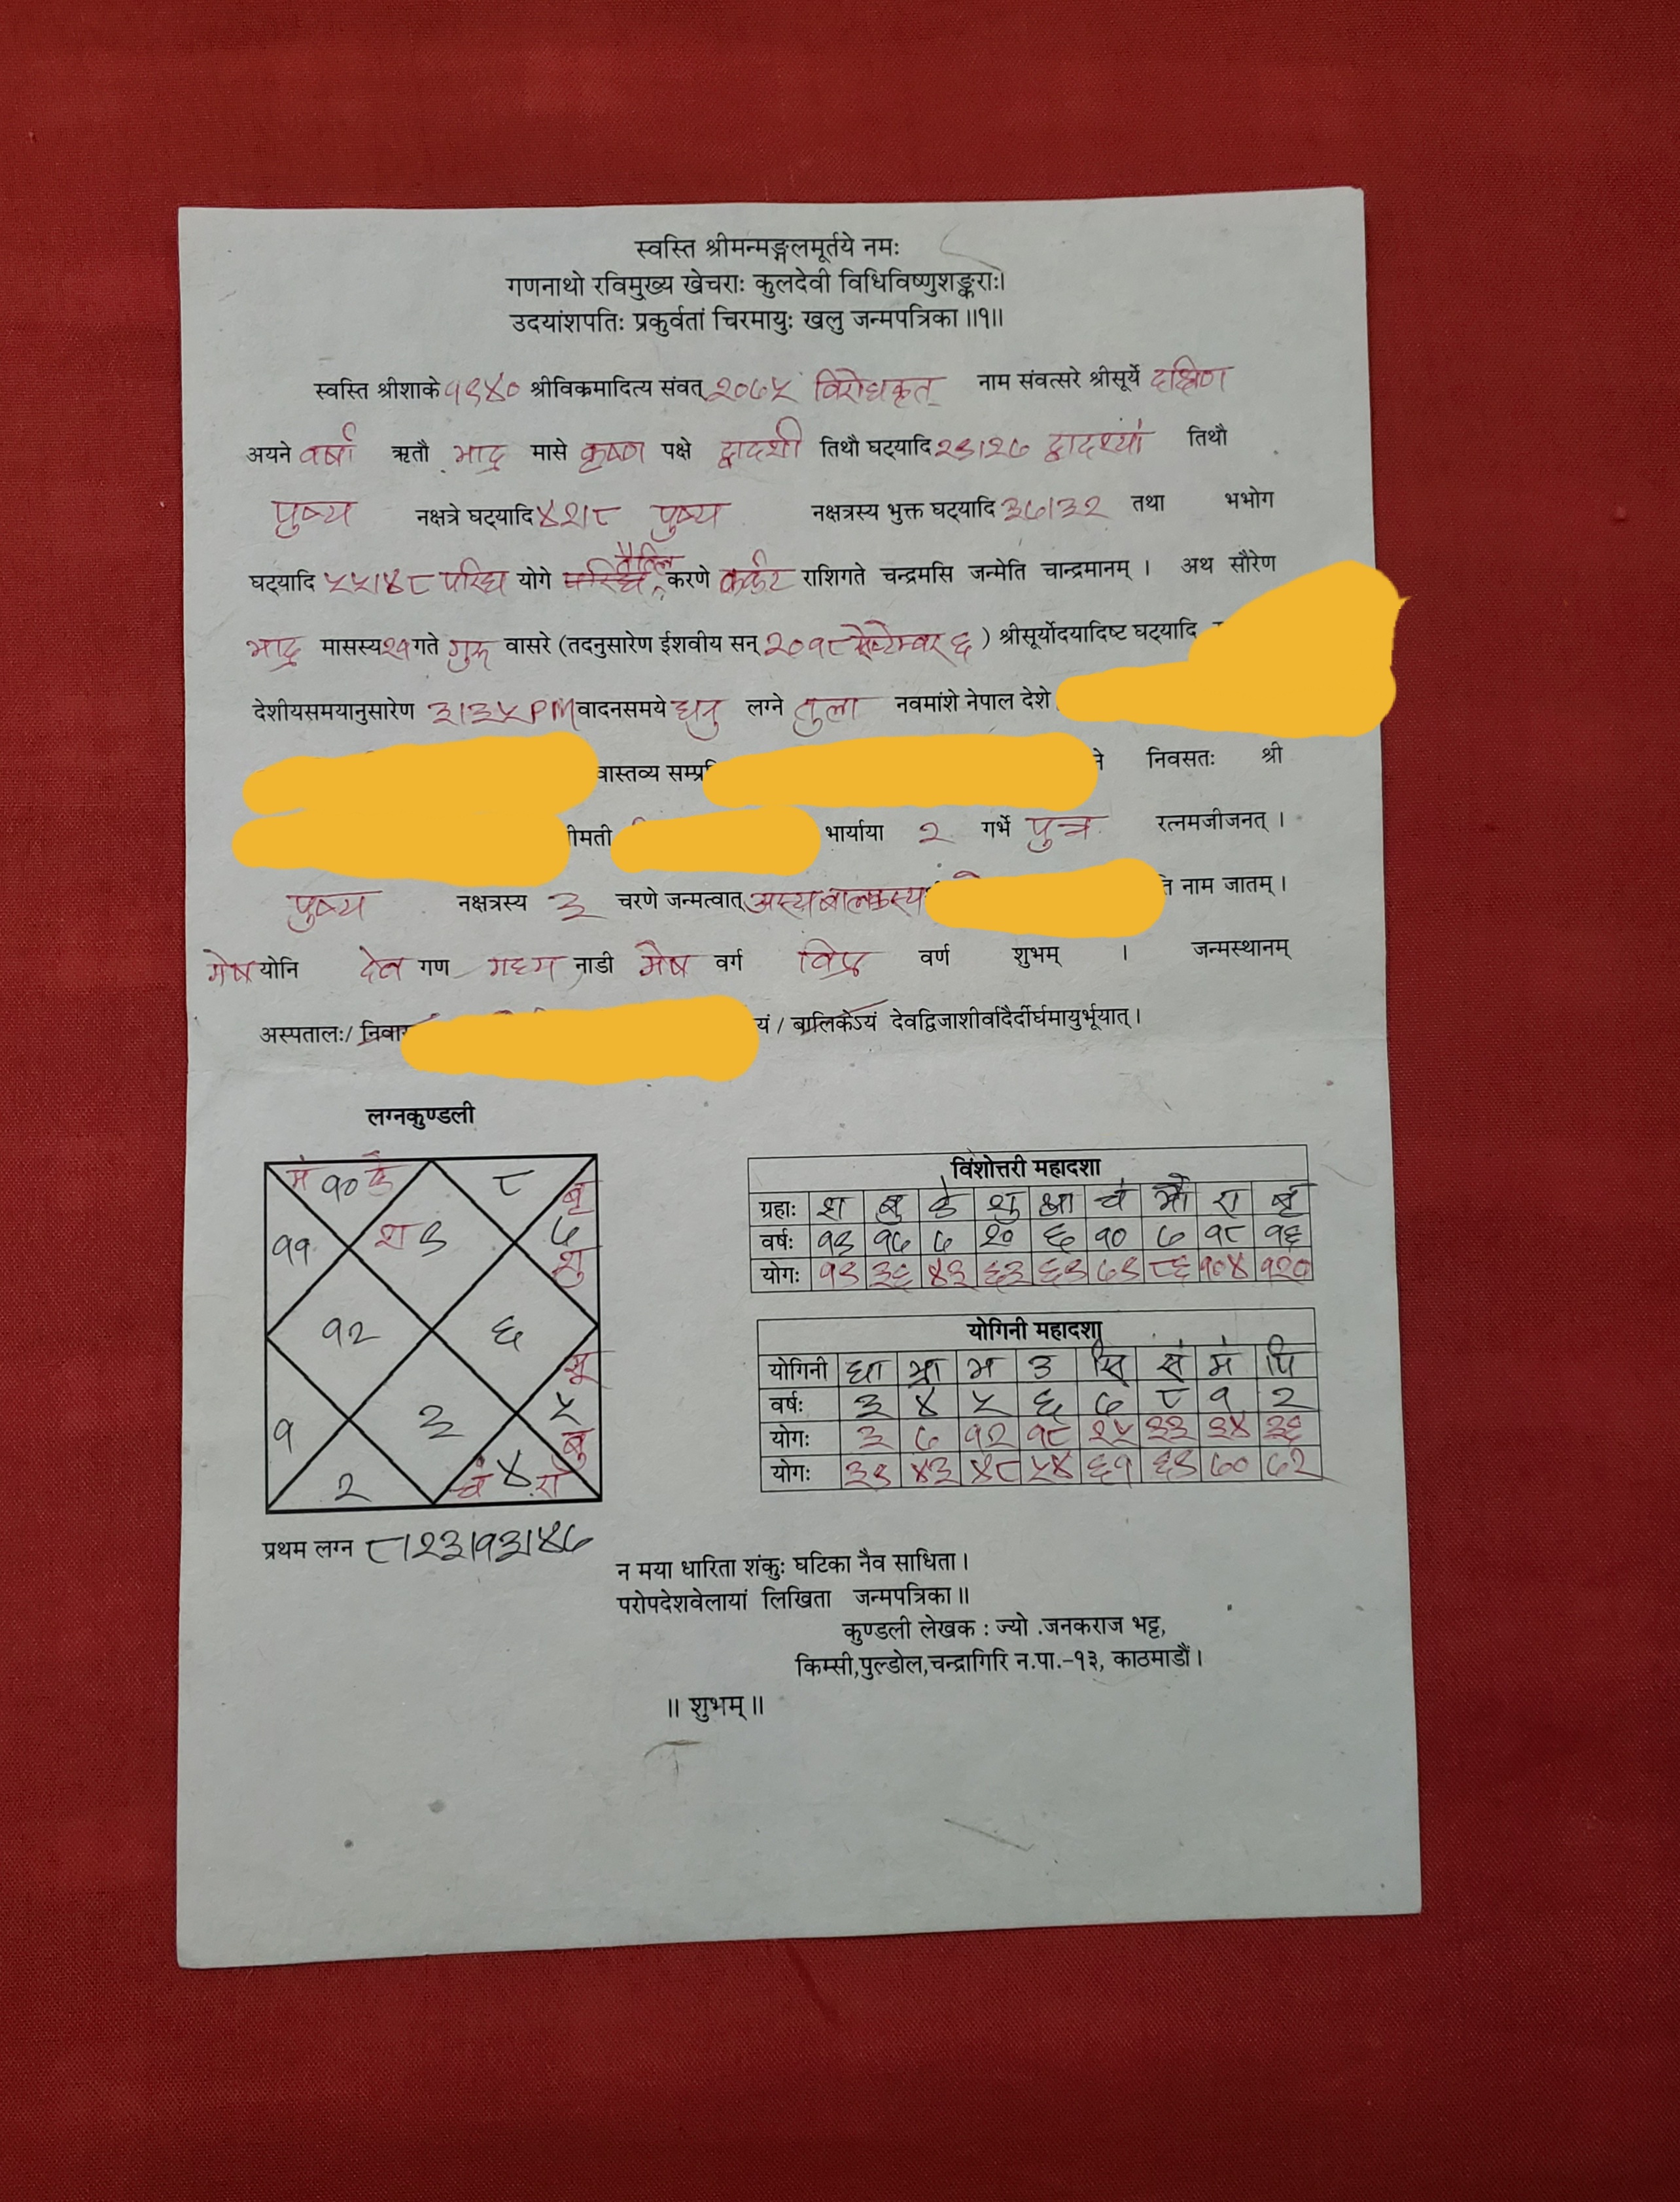 स्वस्ति श्रीमन्मङ्गलमूर्तये नमः
गणनाथो रविमुख्य खेचराः कुलदेवी विधिविष्णुशङ्कराः।
उदयांशपतिः प्रकुर्वतां चिरमायुः खलु जन्मपत्रिका ॥१॥
स्वस्ति श्रीशाके १९४० श्रीविक्रमादित्य संवत् २०७५ विरोधकृत् नाम संवत्सरे श्रीसूर्ये दक्षिण
अयने वर्षा ऋतौ भाद्र मासे कृष्ण पक्षे द्वादशी तिथौ घट्यादि २९।२७ द्वादश्यां तिथौ
पुष्य नक्षत्रे घट्यादि ४२।८ पुष्य नक्षत्रस्य भुक्त घट्यादि ३७।३२ तथा भभोग
घट्यादि ५५।४८ परिघ योगे तैतिल करणे कर्कट राशिगते चन्द्रमसि जन्मेति चान्द्रमानम् । अथ सौरेण
भाद्र मासस्य २१ गते गुरु वासरे (तदनुसारेण ईशवीय सन् २०१८ सेप्टेम्बर ६) श्रीसूर्योदयादिष्ट घट्यादि
देशीयसमयानुसारेण ३।३५ PM वादनसमये धनु लग्ने तुला नवमांशे नेपाल देशे
वास्तव्य निवसतः श्री
भार्याया २ गर्भे पुत्र रत्नमजीजनत् ।
पुष्य नक्षत्रस्य ३ चरणे जन्मत्वात् अस्य बालकस्य नाम जातम् ।
मेष योनि देव गण मध्य नाडी मेष वर्ग विप्र वर्ण शुभम् । जन्मस्थानम्
अस्पतालः/ / बालिकेऽयं देवद्विजाशीर्वादैर्दीर्घमायुर्भूयात् ।
लग्नकुण्डली
मं १० के ८ बृ
११ श ९ ७ शु
१२ ६
सू
१ ३ ५ बु
२ चं ४ रा
प्रथम लग्न ८।२३।१३।४७
विंशोत्तरी महादशा
ग्रहाः श बु के शु आ चं भौ रा बृ
वर्षः १९ १७ ७ २० ६ १० ७ १८ १६
योगः १९ ३६ ४३ ६३ ६९ ७९ ८६ १०४ १२०
योगिनी महादशा
योगिनी धा भ्रा भ उ सि सं मं पि
वर्षः ३ ४ ५ ६ ७ ८ १ २
योगः ३ ७ १२ १८ २५ ३३ ३४ ३६
योगः ३९ ४३ ४८ ५४ ६१ ६९ ७० ७२
न मया धारिता शंकुः घटिका नैव साधिता ।
परोपदेशवेलायां लिखिता जन्मपत्रिका ॥
कुण्डली लेखक : ज्यो .जनकराज भट्ट,
किम्सी,पुल्डोल,चन्द्रागिरि न.पा.-१३, काठमाडौं ।
॥ शुभम् ॥